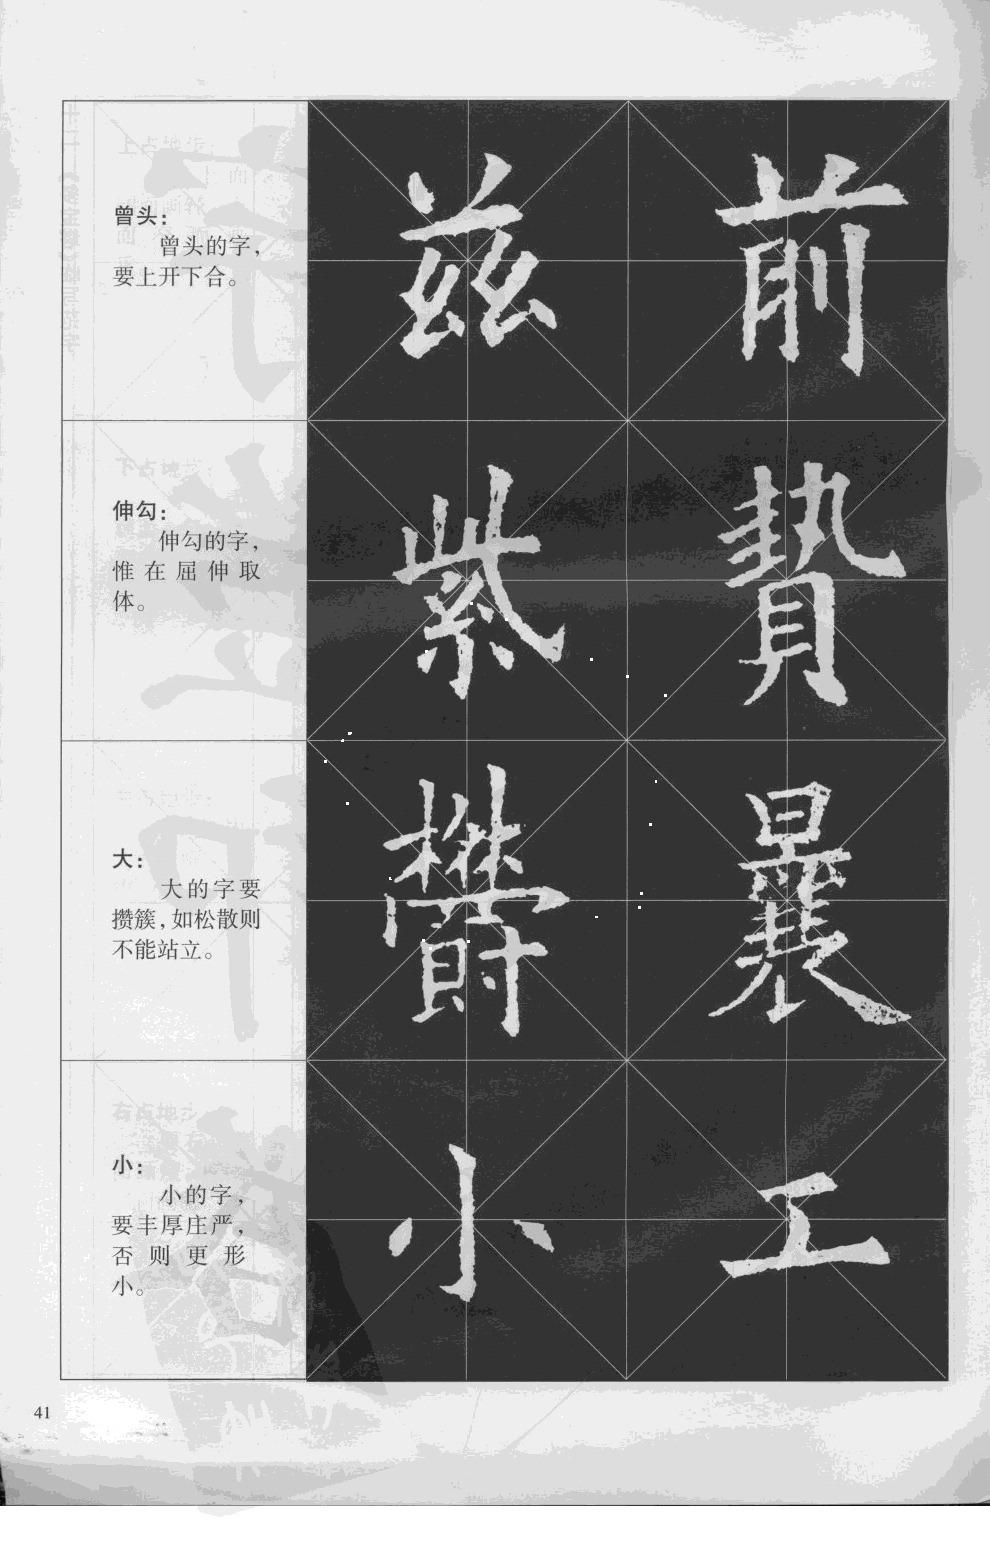 曾头：
曾头的字，
要上开下合。
兹 前
伸勾：
伸勾的字，
惟在屈伸取
体。
紫 贄
大：
大的字要
攒簇，如松散则
不能站立。
小：
小的字，
要丰厚庄严，
否则更形
小。
小 工
41